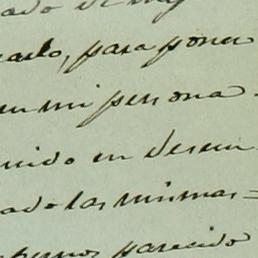 ado de m
para poner
en mi persona
nido en desem
ado las mismas=
parecido